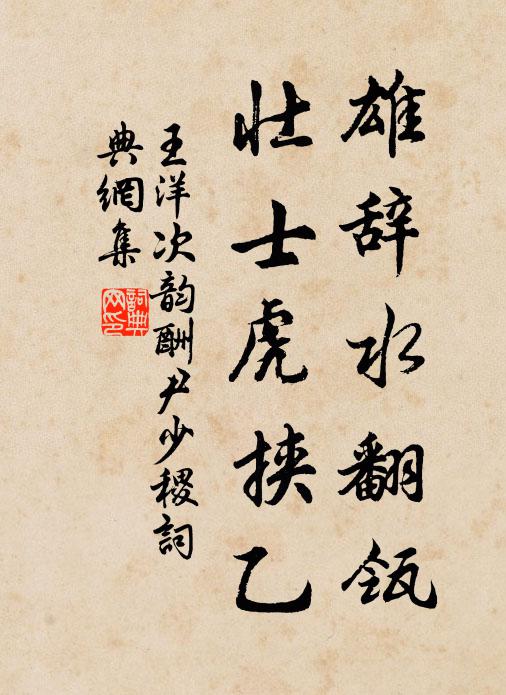 雄辞水翻瓴
壮士虎挟乙
王洋次韵酬尹少稷詞
典網集
詞典网印